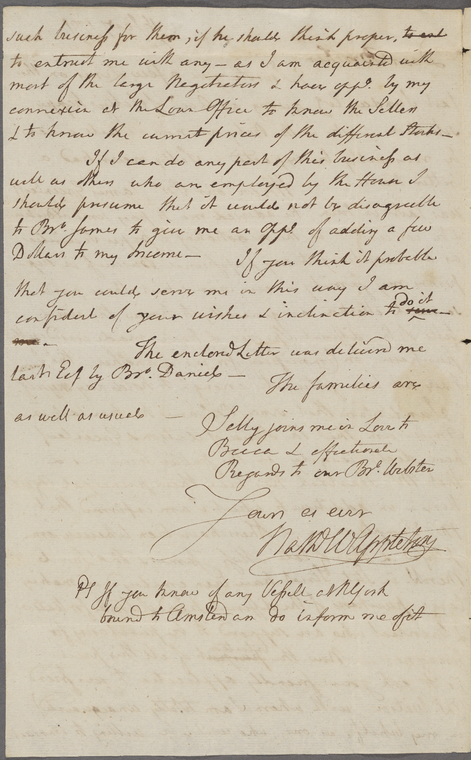 such business for them, if he should think proper, to ent
to entrust me with any — as I am acquainted with
most of the large Negotiators & have oppy. by my
connexion at the Loan Office to know the Sellers
& to know the current prices of the different Stocks —
If I can do any part of this business as
well as others who are employed by the House I
should presume that it would not be disagreeable
to Bro. James to give me an oppy. of adding a few
Dollars to my Income —    If you think it probable
that you could serve me in this way I am
confident of your wishes & inclination to do it
The enclosed Letter was deliverd me
last Eve by Bro. Daniel —    The families are
as well as usual —
Selly joins me in Love to
Becca & affectionate
Regards to our Br. Webster
Yours as ever
Nathl W Appleton
PS If you know of any Vessell at N York
bound to Amsterdam do inform me of it